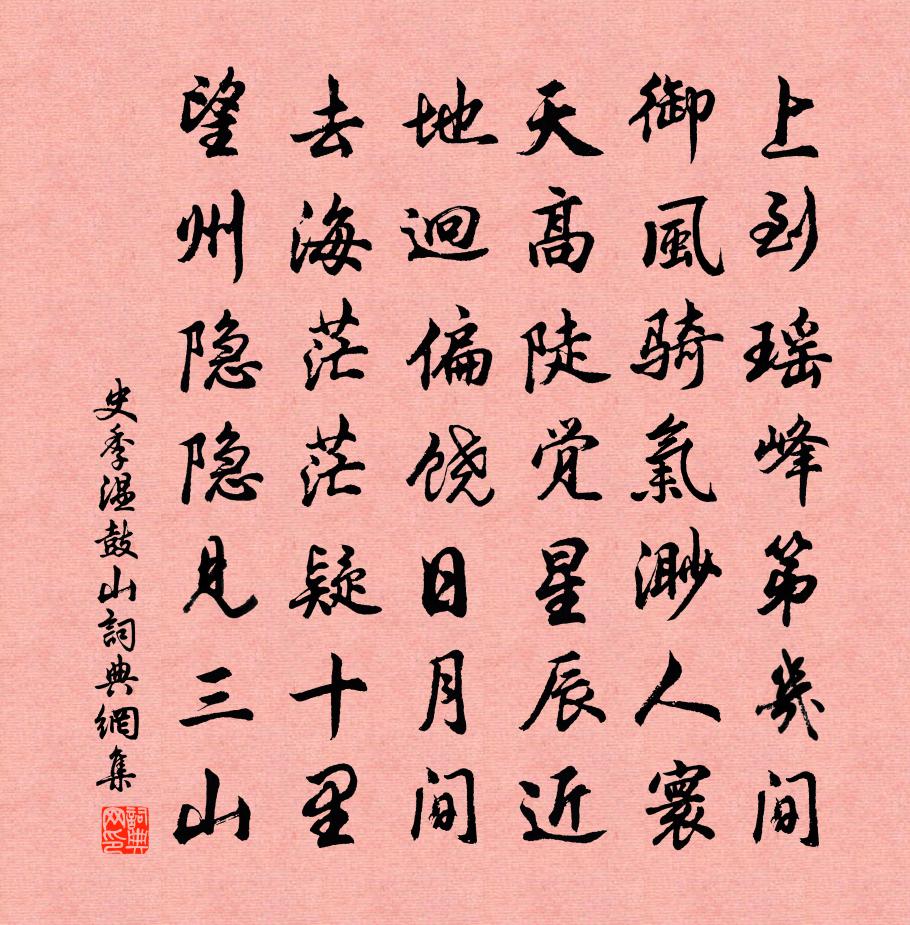 上到瑶峰第几间
御風骑氣渺人寰
天高陡觉星辰近
地迥偏饶日月間
去海茫茫疑十里
望州隐隐見三山
史季温鼓山詞典網集
詞典网印